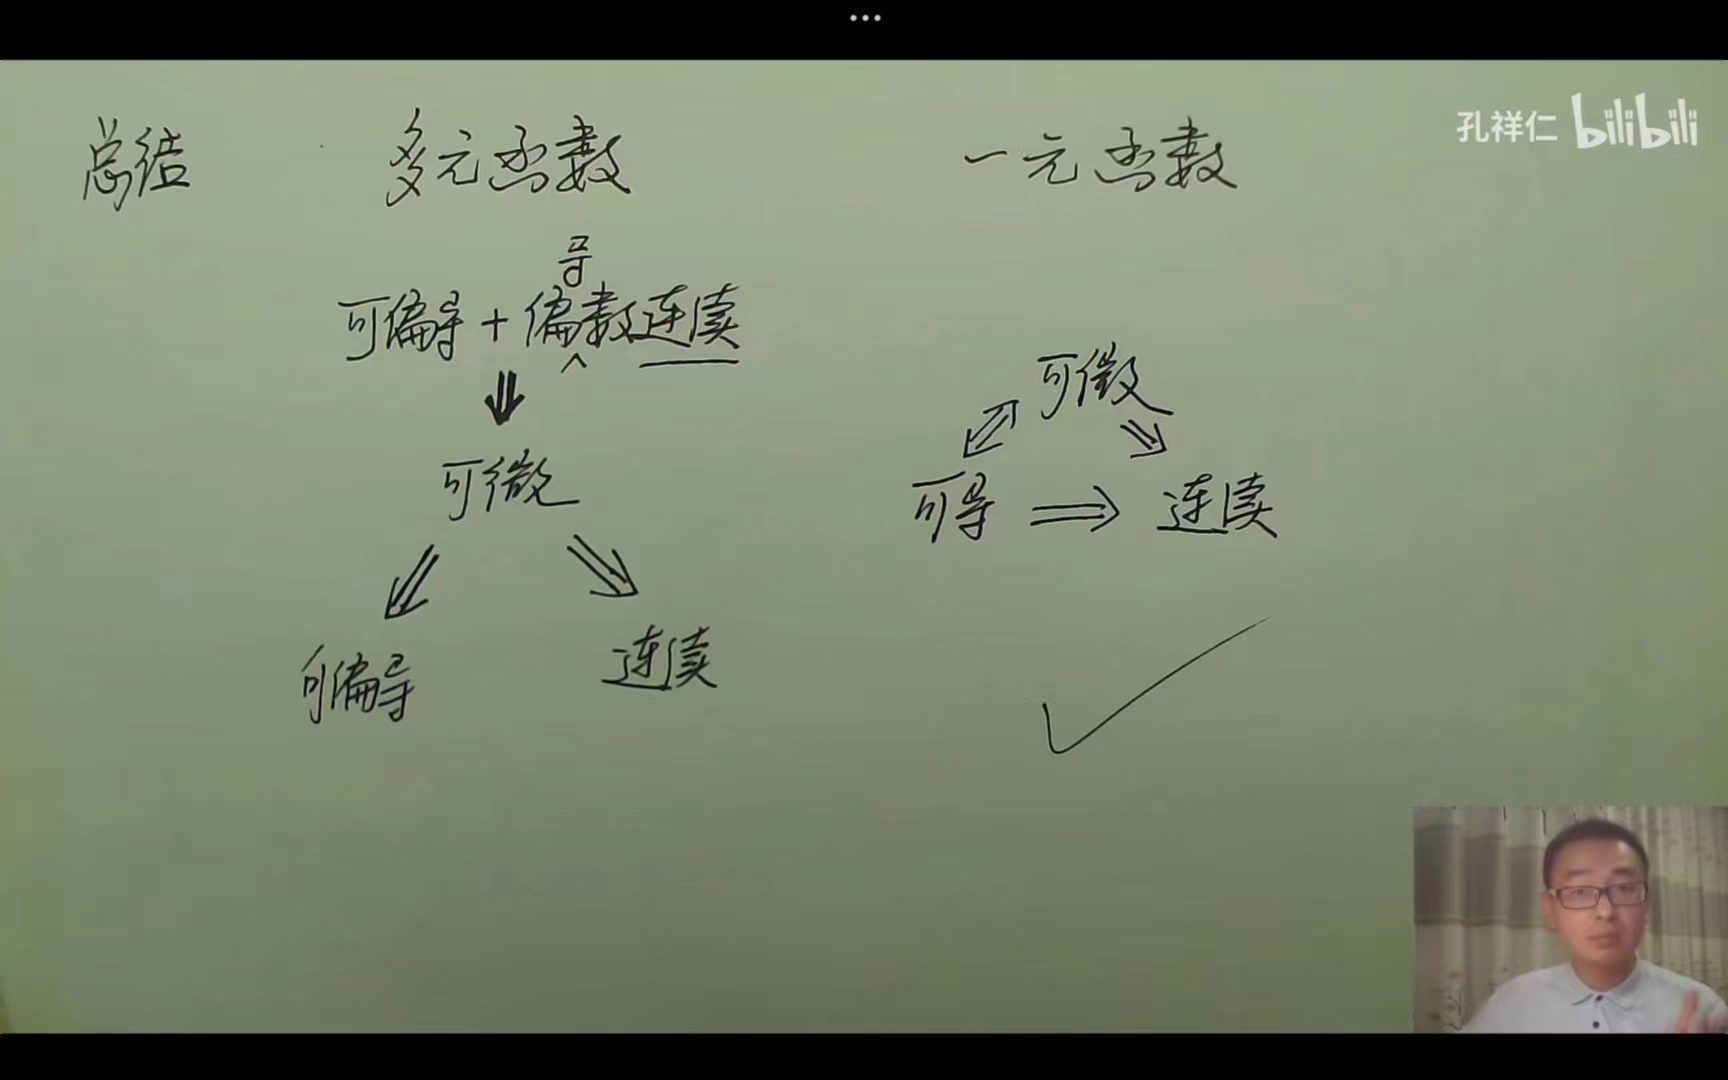 孔祥仁 bilibili
总结 多元函数 一元函数
可偏导 + 偏导数连续
⇓
可微
⇙ ⇘
可偏导 连续
可微
⇗⇙ ⇘
可导 ⇒ 连续
✓